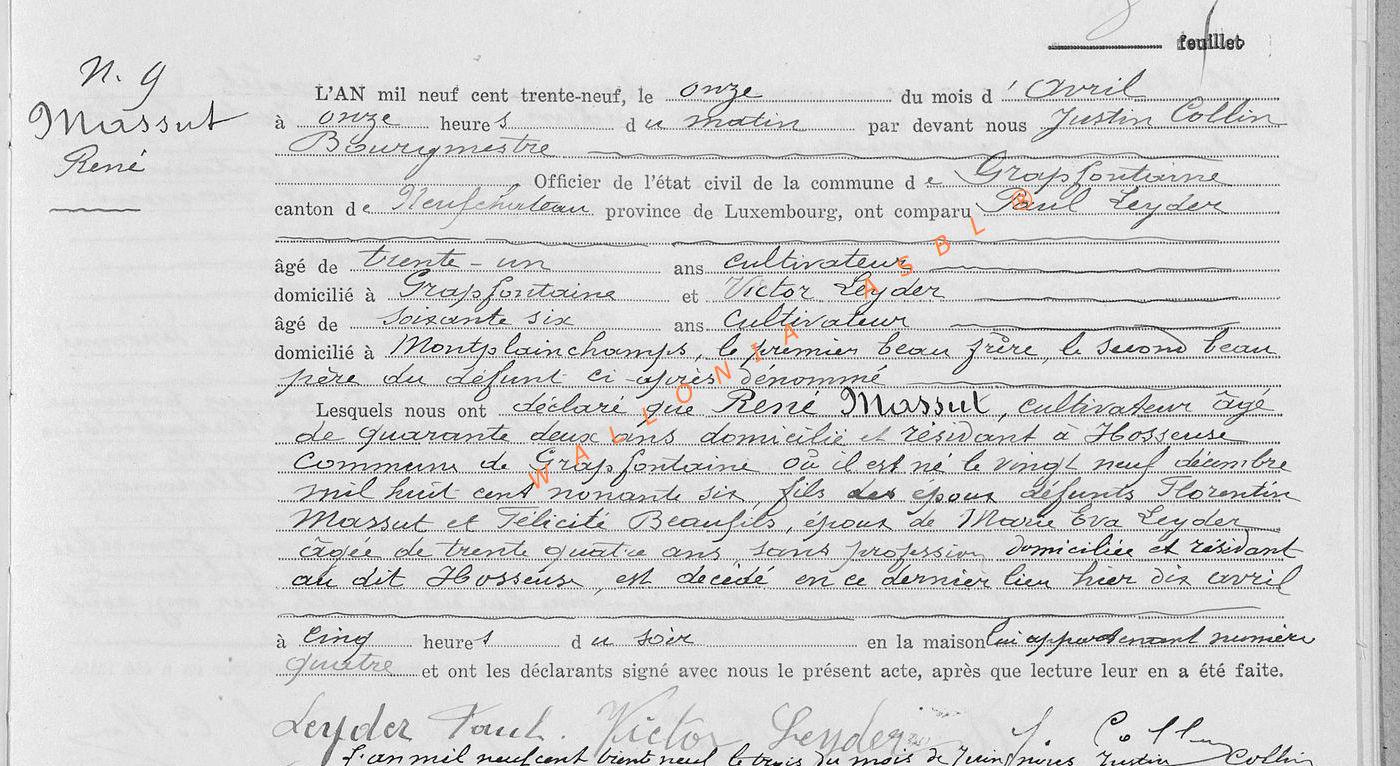 feuillet
N. 9
Massut
René
L'AN mil neuf cent trente-neuf, le onze du mois d' Avril
à onze heures du matin par devant nous Justin Collin
Bourgmestre
Officier de l'état civil de la commune de Grapfontaine
canton de Neufchâteau province de Luxembourg, ont comparu Paul Leyder
âgé de trente-un ans cultivateur
domicilié à Grapfontaine et Victor Leyder
âgé de soixante six ans cultivateur
domicilié à Montplainchamps, le premier beau frère, le second beau
père du défunt ci-après dénommé
Lesquels nous ont déclaré que René Massut, cultivateur âgé
de quarante deux ans domicilié et résidant à Hosseuse
commune de Grapfontaine où il est né le vingt neuf décembre
mil huit cent nonante six, fils des époux défunts Florentin
Massut et Félicité Beaufils, époux de Marie Eva Leyder
âgée de trente quatre ans, sans profession domiciliée et résidant
au dit Hosseuse, est décédé en ce dernier lieu hier dix avril
à cinq heures du soir en la maison lui appartenant numéro
quatre et ont les déclarants signé avec nous le présent acte, après que lecture leur en a été faite.
Leyder Paul. Victor Leyder J. Collin
L'an mil neuf cent trente neuf le trois du mois de Juin nous Justin Collin
WALLONIA ASBL ®